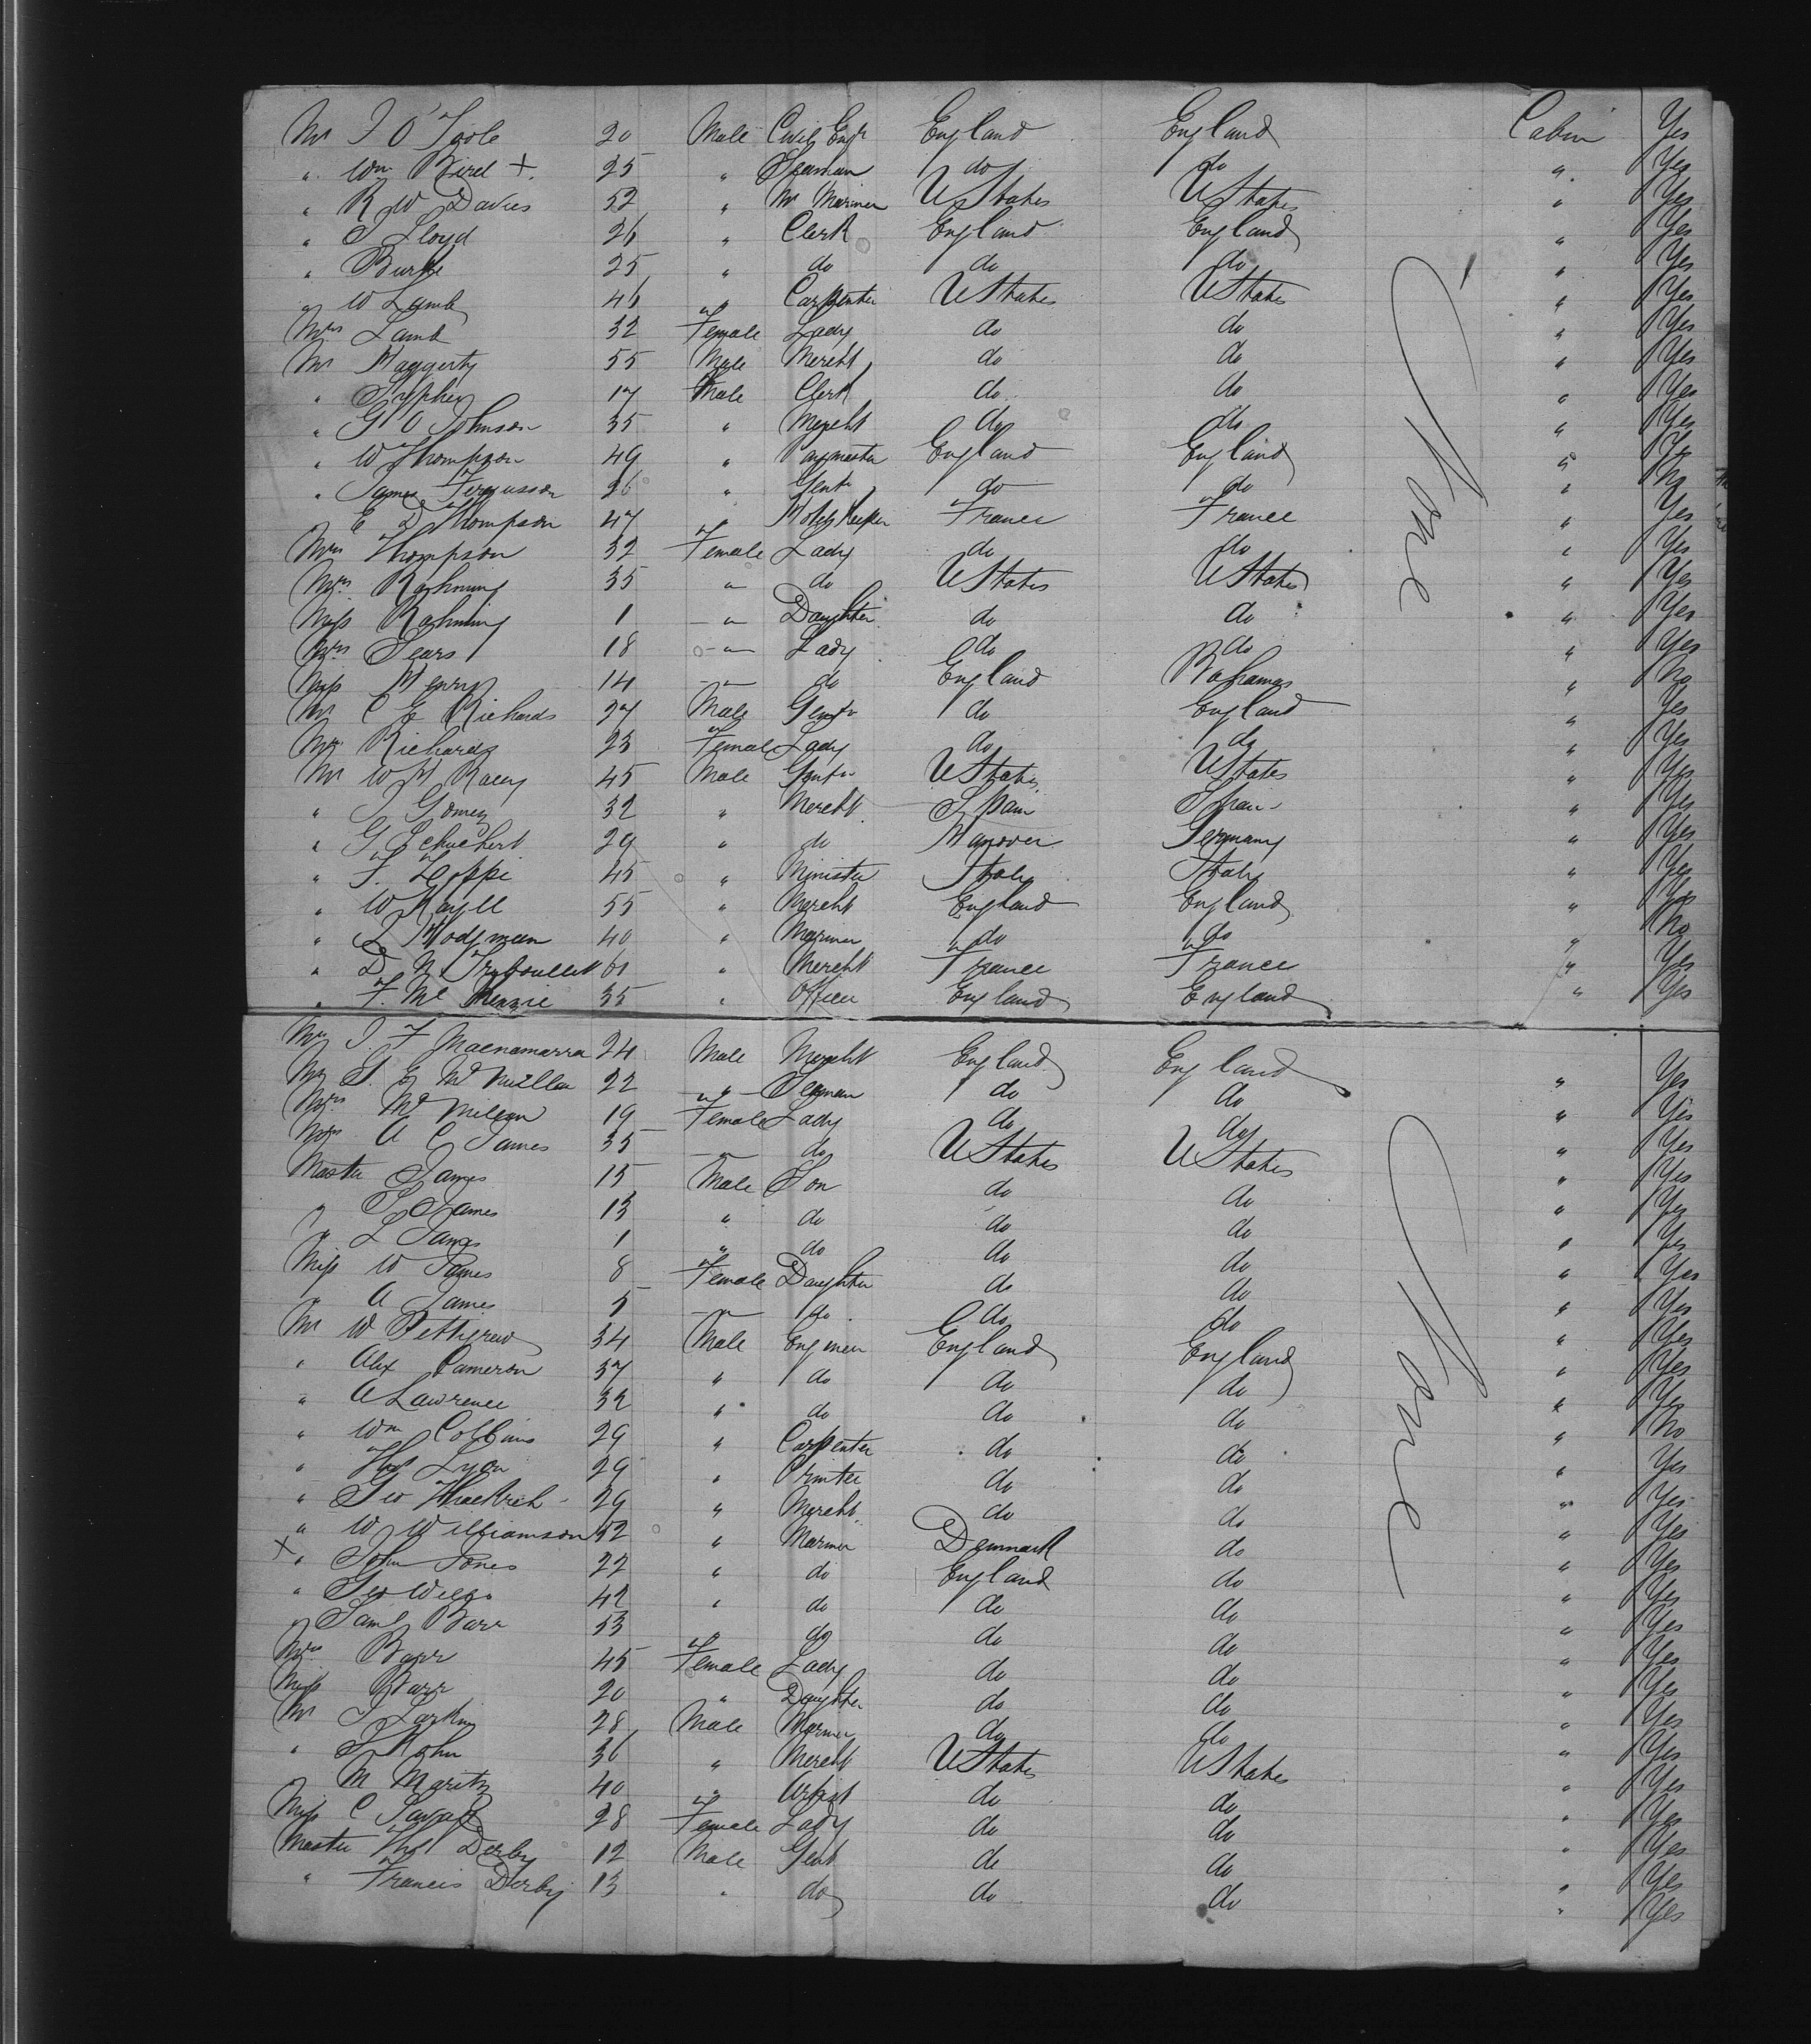 Mr J O'Toole 20 Male Civil Engr England England Cabin Yes
" Wm Bird + 25 " Seaman do do " Yes
" R W Davies 52 " Mr Mariner U States U States " Yes
" J Lloyd 26 " Clerk England England " Yes
" Burke 25 " do do do " Yes
" W Lamb 46 " Carpenter U States U States " Yes
Mrs Lamb 32 Female Lady do do " Yes
Mr Haggerty 55 Male Mercht do do " Yes
" Stephen 17 Male Clerk do do " Yes
" G O Johnson 35 " Mercht do do " Yes
" W Thompson 49 " Paymaster England England " Yes
" James Fergusson 26 " Gentn do do " No
" E D Thompson 47 " Hotel Keeper France France " Yes
Mrs Thompson 32 Female Lady do do " Yes
Mrs Rahming 35 " do U States U States " Yes
Miss Rahming 1 " Daughter do do " Yes
Mrs Sears 18 " Lady do do " Yes
Miss Henry 14 " do England Bahamas " No
Mr C E Richards 27 Male Gentn do England " Yes
Mrs Richards 23 Female Lady do do " Yes
Mr W H Racey 45 Male Gentn U States U States " Yes
" J Gomez 32 " Mercht Spain Spain " Yes
" G Schuchert 29 " do Hanover Germany " Yes
" F. Zeppi 45 " Minister Italy Italy " Yes
" W Kayll 55 " Mercht England England " Yes
" L Hodgman 40 " Mariner do do " No
" D. N. Trybouillet 61 " Mercht France France " Yes
" F. Mc Kenzie 35 " Officer England England " Yes
None
Mr J F Macnamarra 24 Male Mercht England England " Yes
Mr S. E Mc Millan 22 " Seaman do do " Yes
Mrs Mc Millan 19 Female Lady do do " Yes
Mrs A C James 35 " do U States U States " Yes
Master James 15 Male Son do do " Yes
" James 13 " do do do " Yes
" L James 1 " do do do " Yes
Miss W James 8 Female Daughter do do " Yes
" A James 5 " do do do " Yes
Mr W Pettigrew 34 Male Engineer England England " Yes
" Alex Cameron 37 " do do do " Yes
" A Lawrence 32 " do do do " Yes
" Wm Collins 29 " Carpenter do do " No
" Hy Lyon 29 " Printer do do " Yes
" Geo 29 " Mercht do do " Yes
" W Williamson 52 " Mariner Denmark do " Yes
+ " John Jones 22 " do England do " Yes
" Geo 42 " do do do " Yes
" Saml Barr 53 " do do do " Yes
Mrs Barr 45 Female Lady do do " Yes
Miss Barr 20 " Daughter do do " Yes
Mr J Larkin 28 Male Mariner do do " Yes
" S Kohn 36 " Mercht U States U States " Yes
" M Maritz 40 " Artist do do " Yes
Miss C Savage 28 Female Lady do do " Yes
Master Derby 12 Male Gent do do " Yes
" Francis Derby 13 " do do do " Yes
None